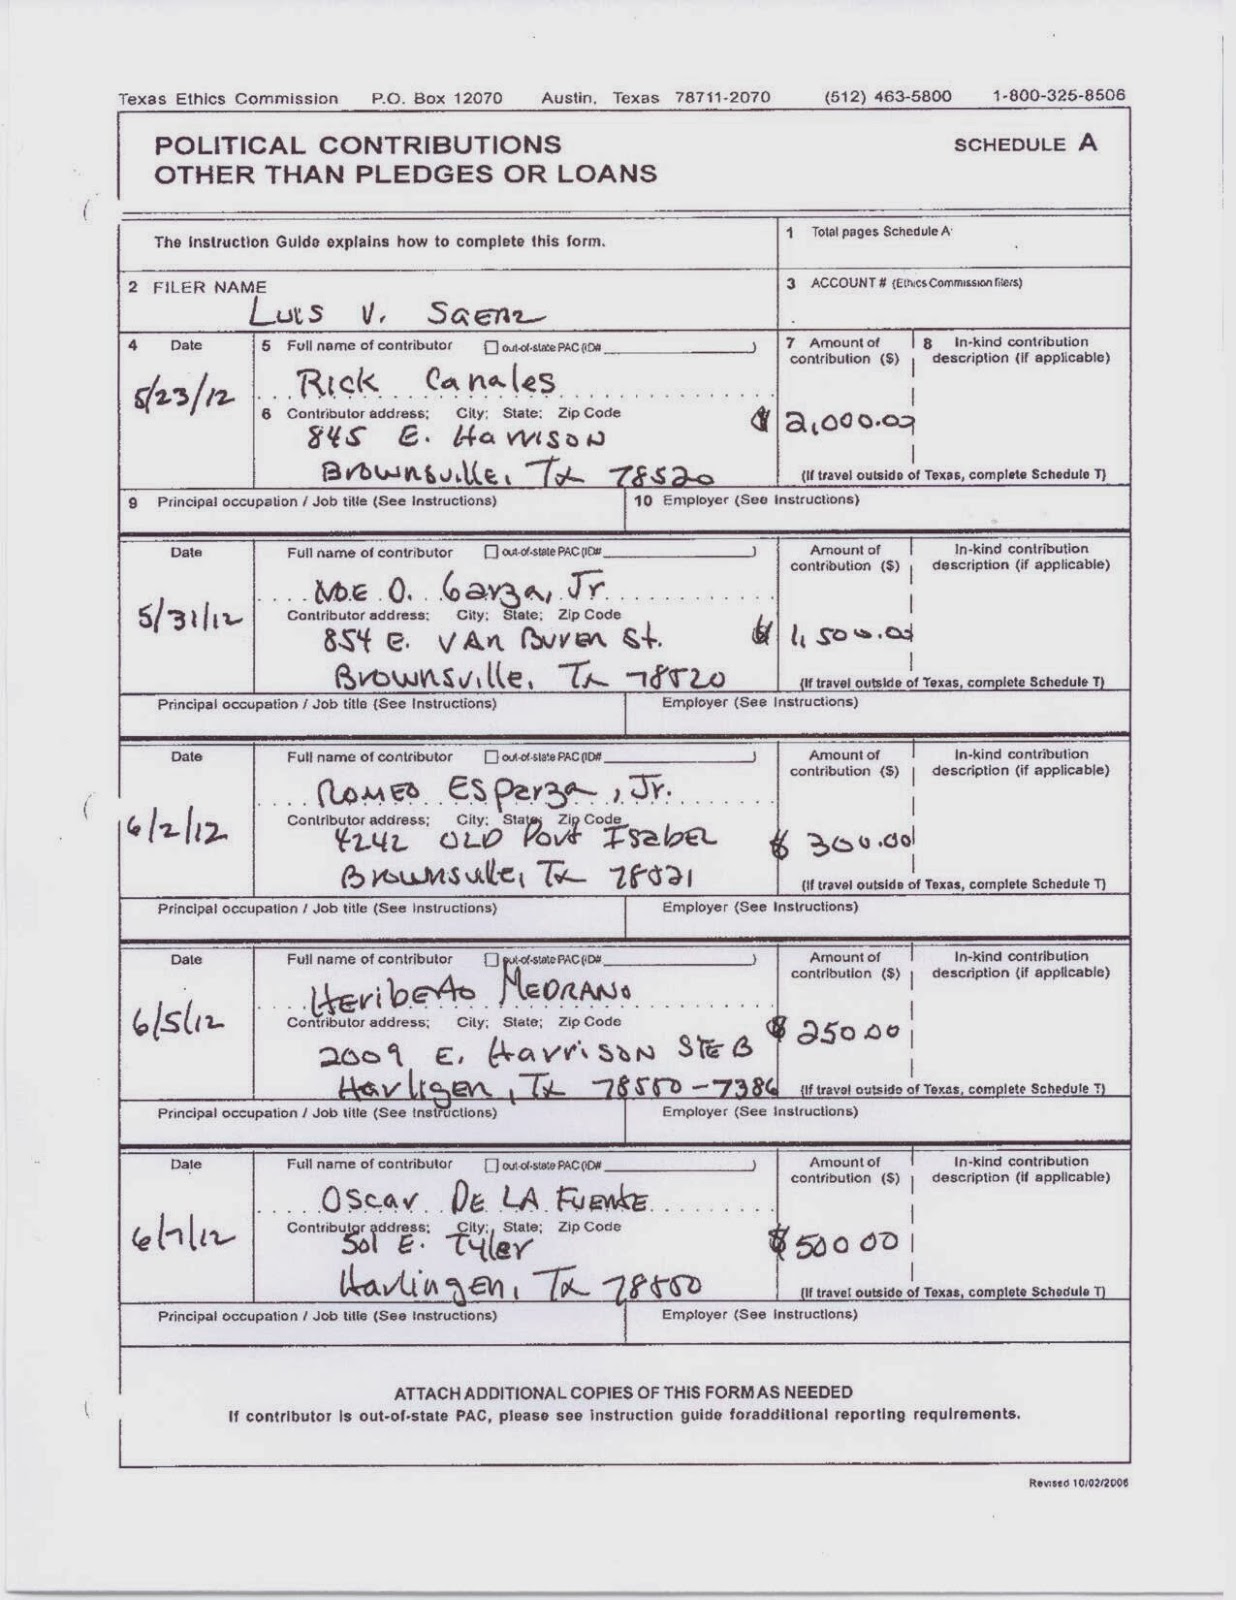 Texas Ethics Commission P.O. Box 12070 Austin, Texas 78711-2070 (512) 463-5800 1-800-325-8506
POLITICAL CONTRIBUTIONS
OTHER THAN PLEDGES OR LOANS
SCHEDULE A
The Instruction Guide explains how to complete this form.
1 Total pages Schedule A:
2 FILER NAME
Luis V. Saenz
3 ACCOUNT # (Ethics Commission filers)
4 Date
5 Full name of contributor out-of-state PAC (ID#
7 Amount of contribution ($)
8 In-kind contribution description (if applicable)
5/23/12
Rick Canales
6 Contributor address; City; State; Zip Code
845 E. Harrison
Brownsville, Tx 78520
$ 2,000.00
(If travel outside of Texas, complete Schedule T)
9 Principal occupation / Job title (See Instructions)
10 Employer (See Instructions)
Date
Full name of contributor out-of-state PAC (ID#
Amount of contribution ($)
In-kind contribution description (if applicable)
5/31/12
Noe O. Garza, Jr.
Contributor address; City; State; Zip Code
854 E. Van Buren St.
Brownsville, Tx 78520
$ 1,500.00
(If travel outside of Texas, complete Schedule T)
Principal occupation / Job title (See Instructions)
Employer (See Instructions)
Date
Full name of contributor out-of-state PAC (ID#
Amount of contribution ($)
In-kind contribution description (if applicable)
6/2/12
Romeo Esparza, Jr.
Contributor address; City; State; Zip Code
4242 Old Port Isabel
Brownsville, Tx 78521
$ 300.00
(If travel outside of Texas, complete Schedule T)
Principal occupation / Job title (See Instructions)
Employer (See Instructions)
Date
Full name of contributor out-of-state PAC (ID#
Amount of contribution ($)
In-kind contribution description (if applicable)
6/5/12
Heriberto Medrano
Contributor address; City; State; Zip Code
2009 E. Harrison Ste B
Harligen, Tx 78550-7386
$ 250.00
(If travel outside of Texas, complete Schedule T)
Principal occupation / Job title (See Instructions)
Employer (See Instructions)
Date
Full name of contributor out-of-state PAC (ID#
Amount of contribution ($)
In-kind contribution description (if applicable)
6/7/12
Oscar De La Fuente
Contributor address; City; State; Zip Code
501 E. Tyler
Harlingen, Tx 78550
$ 500.00
(If travel outside of Texas, complete Schedule T)
Principal occupation / Job title (See Instructions)
Employer (See Instructions)
ATTACH ADDITIONAL COPIES OF THIS FORM AS NEEDED
If contributor is out-of-state PAC, please see instruction guide foradditional reporting requirements.
Revised 10/02/2006